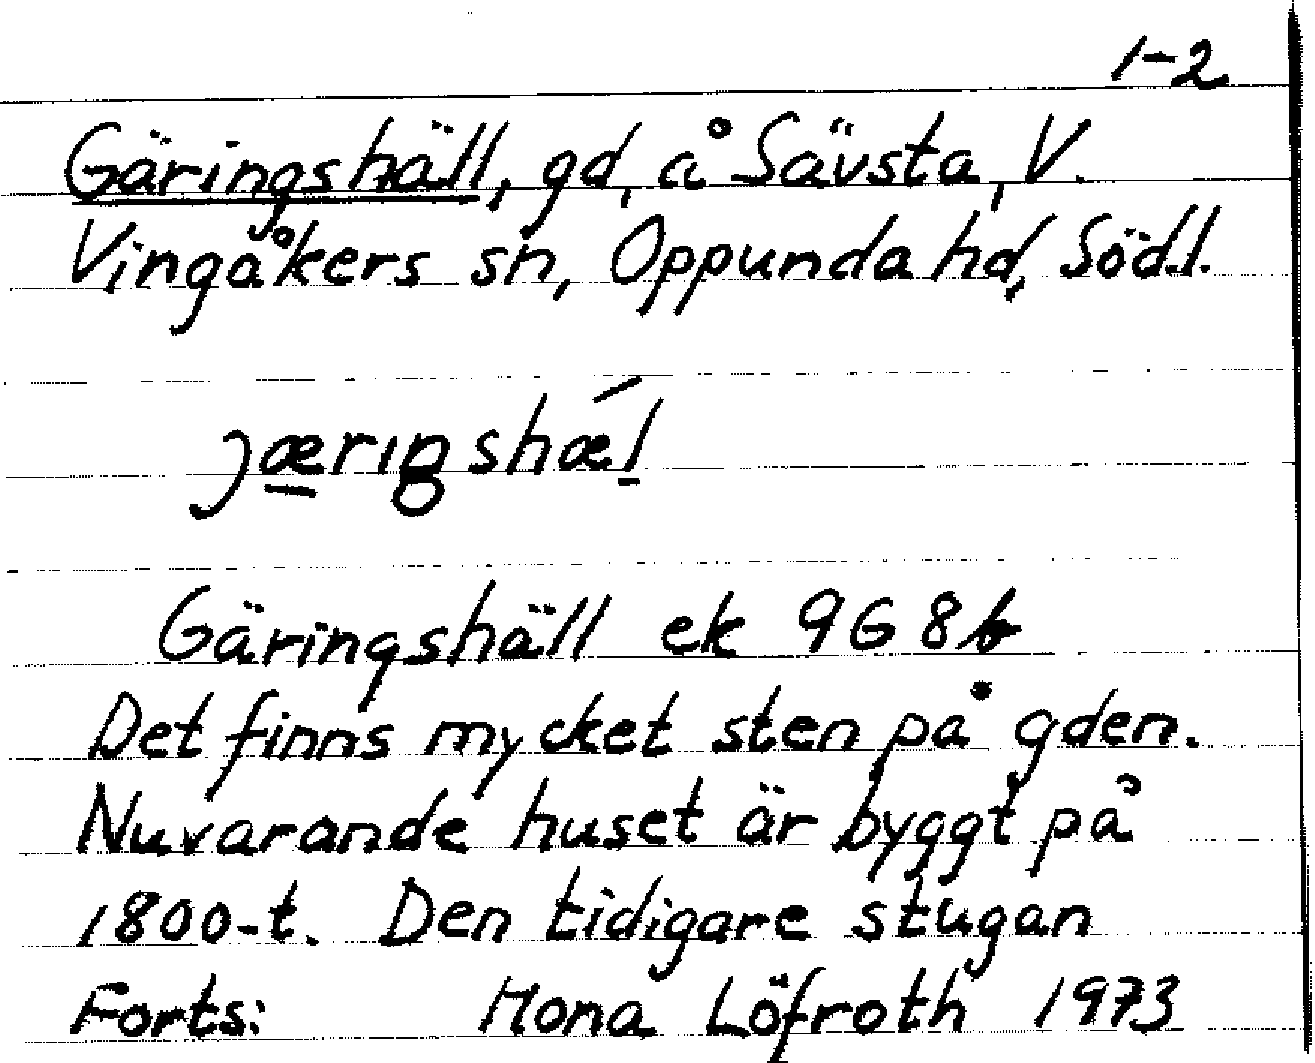 1-2
Gäringshäll, gd, å Sävsta, V.
Vingåkers sn, Oppunda hd, Södl.
jæriŋshǽl
Gäringshäll ek 9G 8b
Det finns mycket sten på gden.
Nuvarande huset är byggt på
1800-t. Den tidigare stugan
Forts: Mona Löfroth 1973